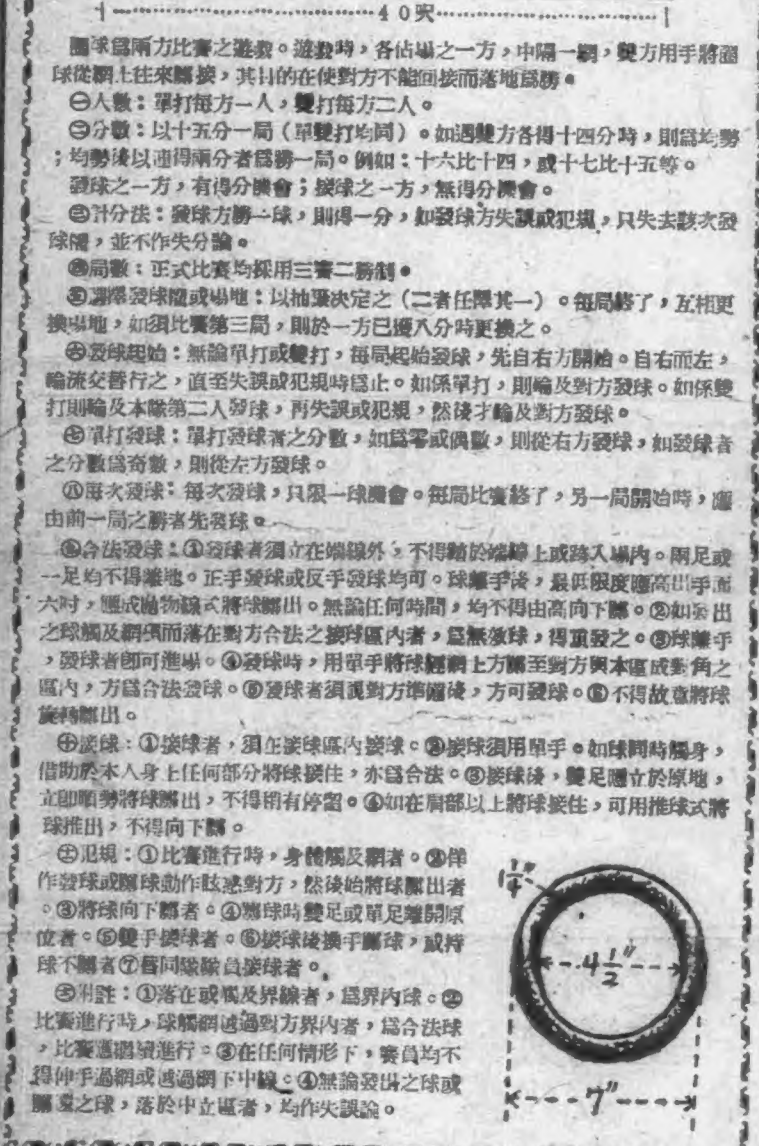 40呎
圈球爲兩方比賽之遊戲。遊戲時,各佔場之一方,中隔一網,雙方用手將圈
球從網上往來擲接,其目的在使對方不能回接而落地爲勝。
㊀人數:單打每方一人,雙打每方二人。
㊁分數:以十五分一局(單雙打均同)。如遇雙方各得十四分時,則爲均勢
;均勢後以連得兩分者爲勝一局。例如:十六比十四,或十七比十五等。
發球之一方,有得分機會;接球之一方,無得分機會。
㊂計分法:發球方勝一球,則得一分,如發球方失誤或犯規,只失去該次發
球權,並不作失分論。
㊃局數:正式比賽均採用三賽二勝制。
㊄選擇發球權或場地:以抽籤決定之(二者任擇其一)。每局終了,互相更
換場地,如須比賽第三局,則於一方已達八分時更換之。
㊅發球起始:無論單打或雙打,每局起始發球,先自右方開始。自右而左,
輪流交替行之,直至失誤或犯規時爲止。如係單打,則輪及對方發球。如係雙
打則輪及本隊第二人發球,再失誤或犯規,然後才輪及對方發球。
㊆單打發球:單打發球者之分數,如爲零或偶數,則從右方發球,如發球者
之分數爲奇數,則從左方發球。
㊇每次發球:每次發球,只限一球機會。每局比賽終了,另一局開始時,應
由前一局之勝者先發球。
㊈合法發球:①發球者須立在端線外,不得踏於端線上或跨入場內。兩足或
一足均不得離地。正手發球或反手發球均可。球離手後,最低限度應高出手面
六吋,應成拋物線式將球擲出。無論任何時間,均不得由高向下擲。②如發出
之球觸及網頂而落在對方合法之接球區內者,爲無效球,得重發之。③球離手
,發球者卽可進場。④發球時,用單手將球經網上方擲至對方與本區成對角之
區內,方爲合法發球。⑤發球者須視對方準備後,方可發球。⑥不得故意將球
旋轉擲出。
㊉接球:①接球者,須在接球區內接球。②接球須用單手。如球同時觸身,
借助於本人身上任何部分將球接住,亦爲合法。③接球後,雙足應立於原地,
立卽順勢將球擲出,不得稍有停留。④如在肩部以上將球接住,可用推球式將
球推出,不得向下擲。
㊉一犯規:①比賽進行時,身體觸及網者。②佯
作發球或擲球動作眩惑對方,然後始將球擲出者
。③將球向下擲者。④擲球時雙足或單足離開原
位者。⑤雙手接球者。⑥接球後換手擲球,或持
球不擲者⑦替同隊隊員接球者。
㊉二附註:①落在或觸及界線者,爲界內球。②
比賽進行時,球觸網越過對方界內者,爲合法球
,比賽應繼續進行。③在任何情形下,賽員均不
得伸手過網或越過網下中線。④無論發出之球或
擲還之球,落於中立區者,均作失誤論。
1 1/4"
4 1/2"
7"